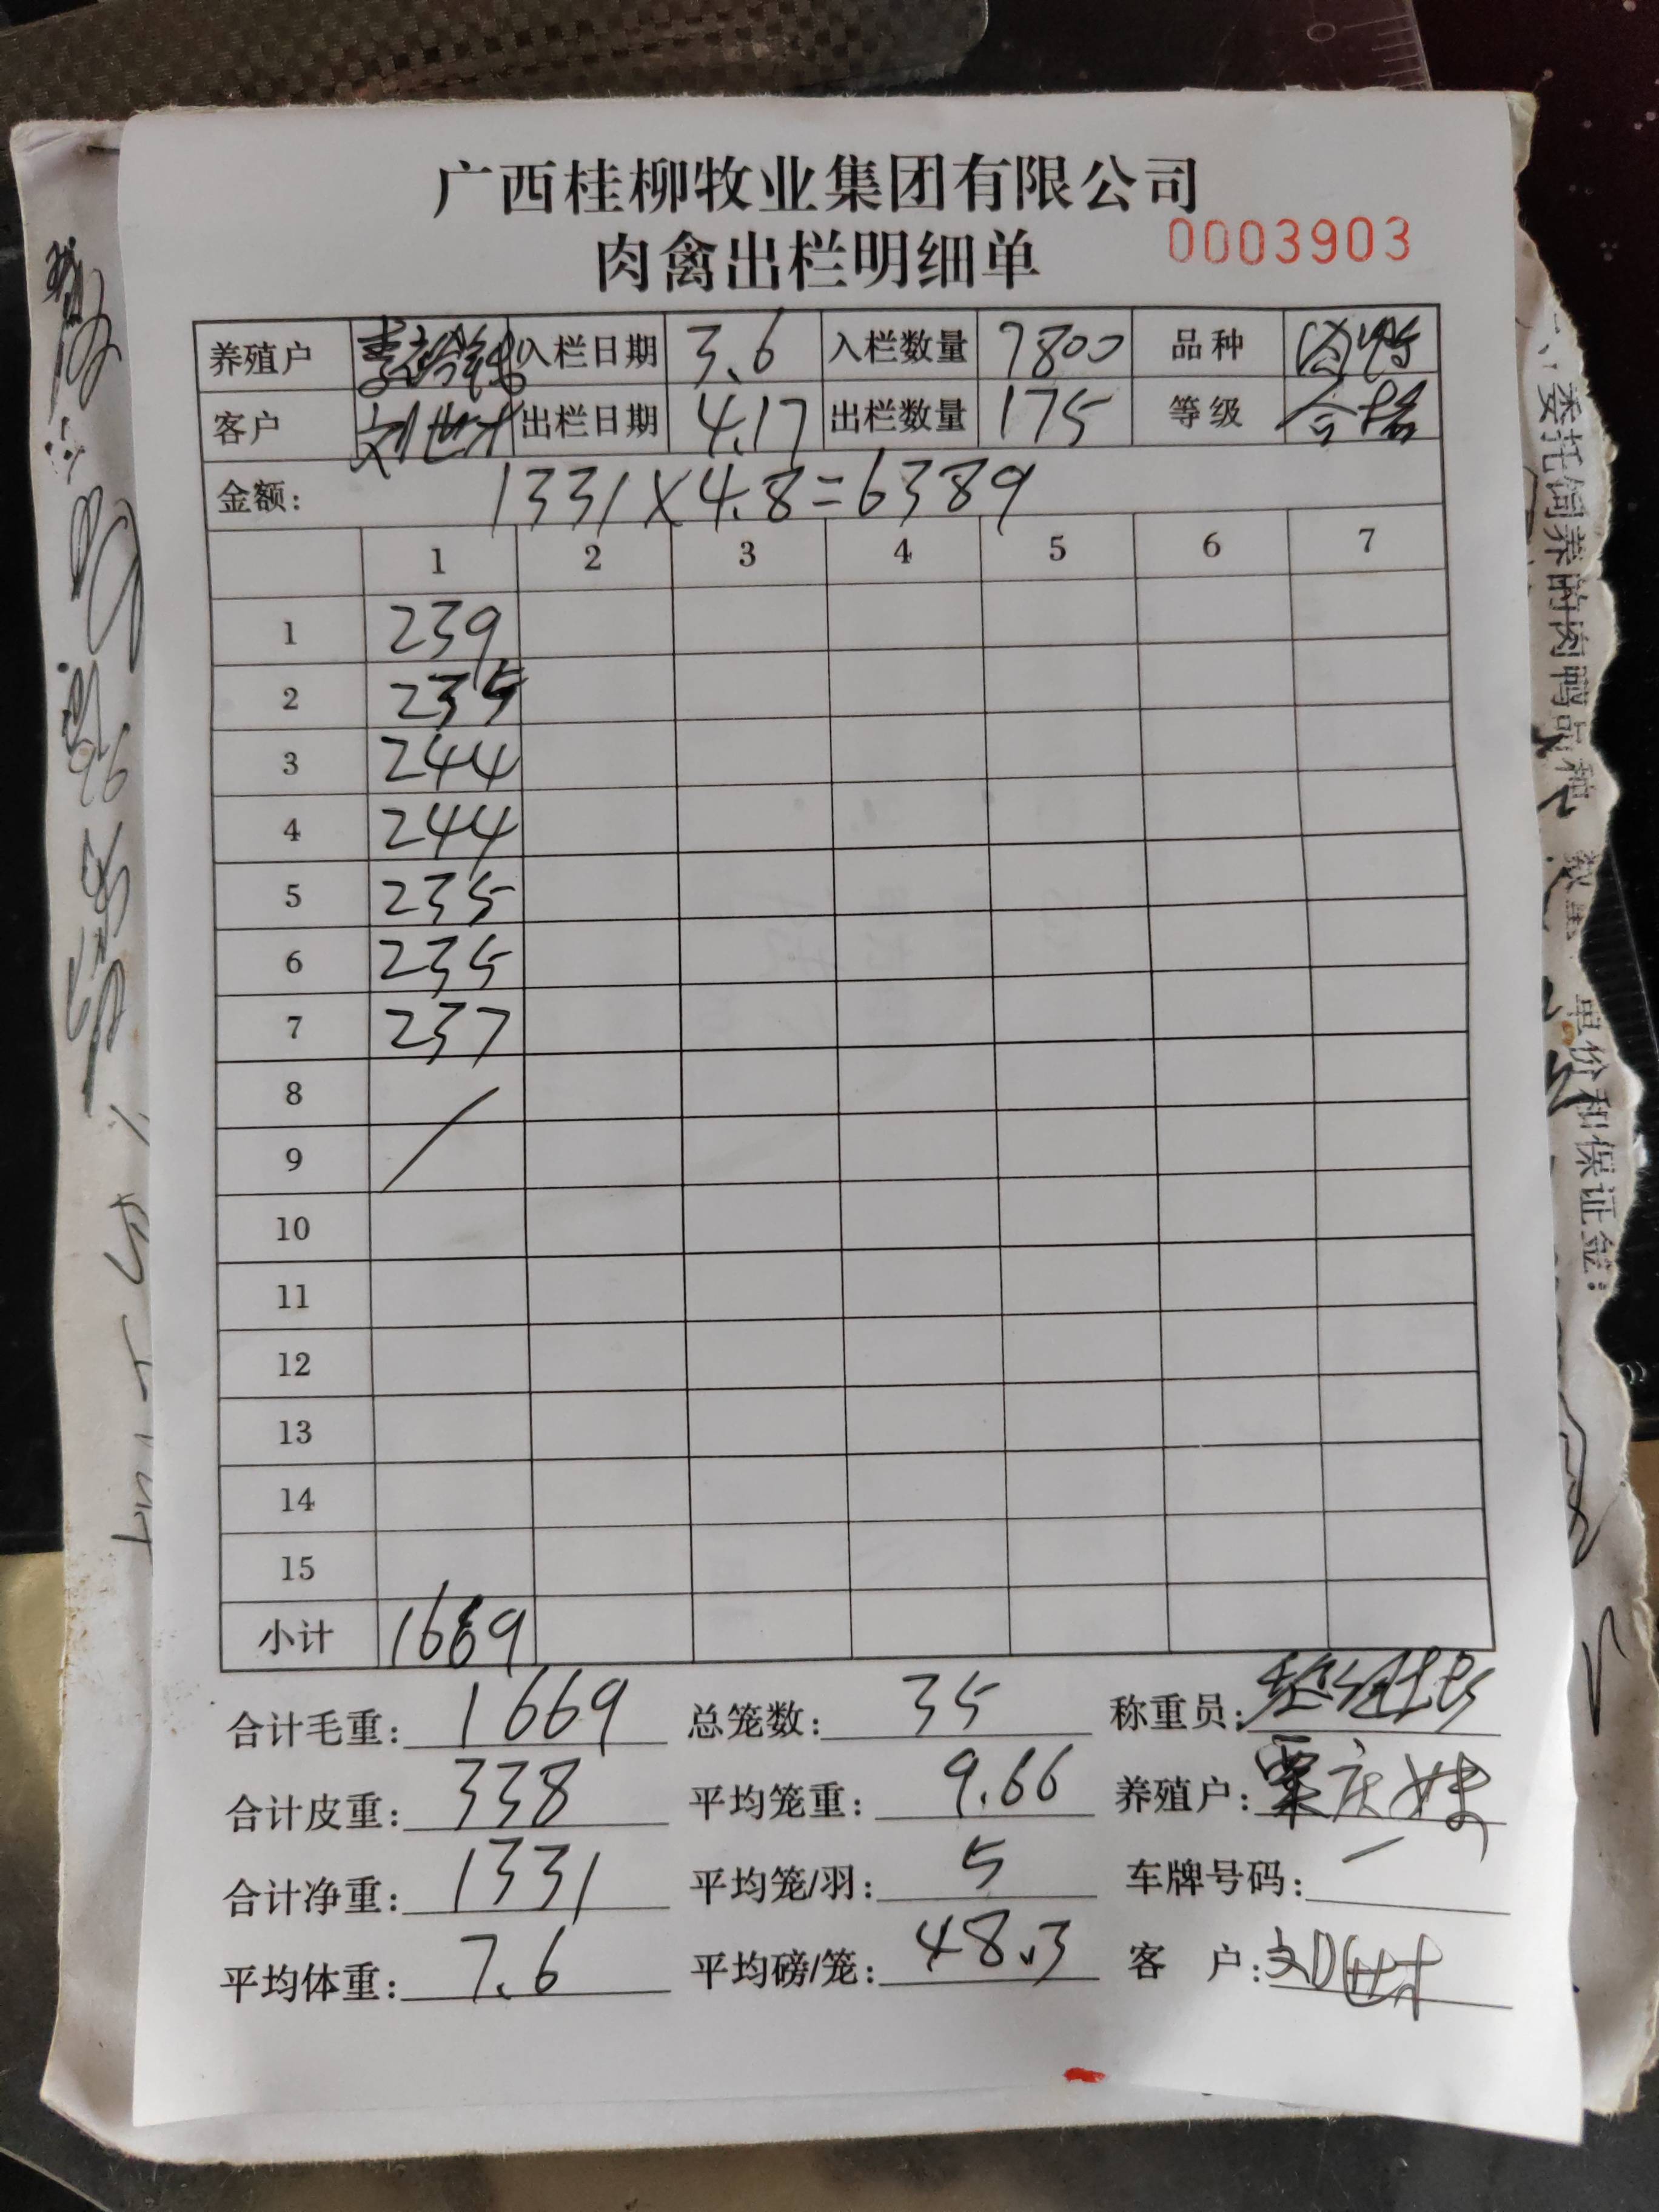 广西桂柳牧业集团有限公司
肉禽出栏明细单 0003903
养殖户 入栏日期 3.6 入栏数量 7800 品种
客户 刘世才 出栏日期 4.17 出栏数量 175 等级 合格
金额: 1331×4.8=6389
1 2 3 4 5 6 7
1 239
2 235
3 244
4 244
5 235
6 235
7 237
8
9
10
11
12
13
14
15
小计 1669
合计毛重: 1669 总笼数: 35 称重员:
合计皮重: 338 平均笼重: 9.66 养殖户:
合计净重: 1331 平均笼/羽: 5 车牌号码: 一
平均体重: 7.6 平均磅/笼: 48.3 客 户: 刘世才
委托饲养的肉鸭品种
数量 单价和保证金: